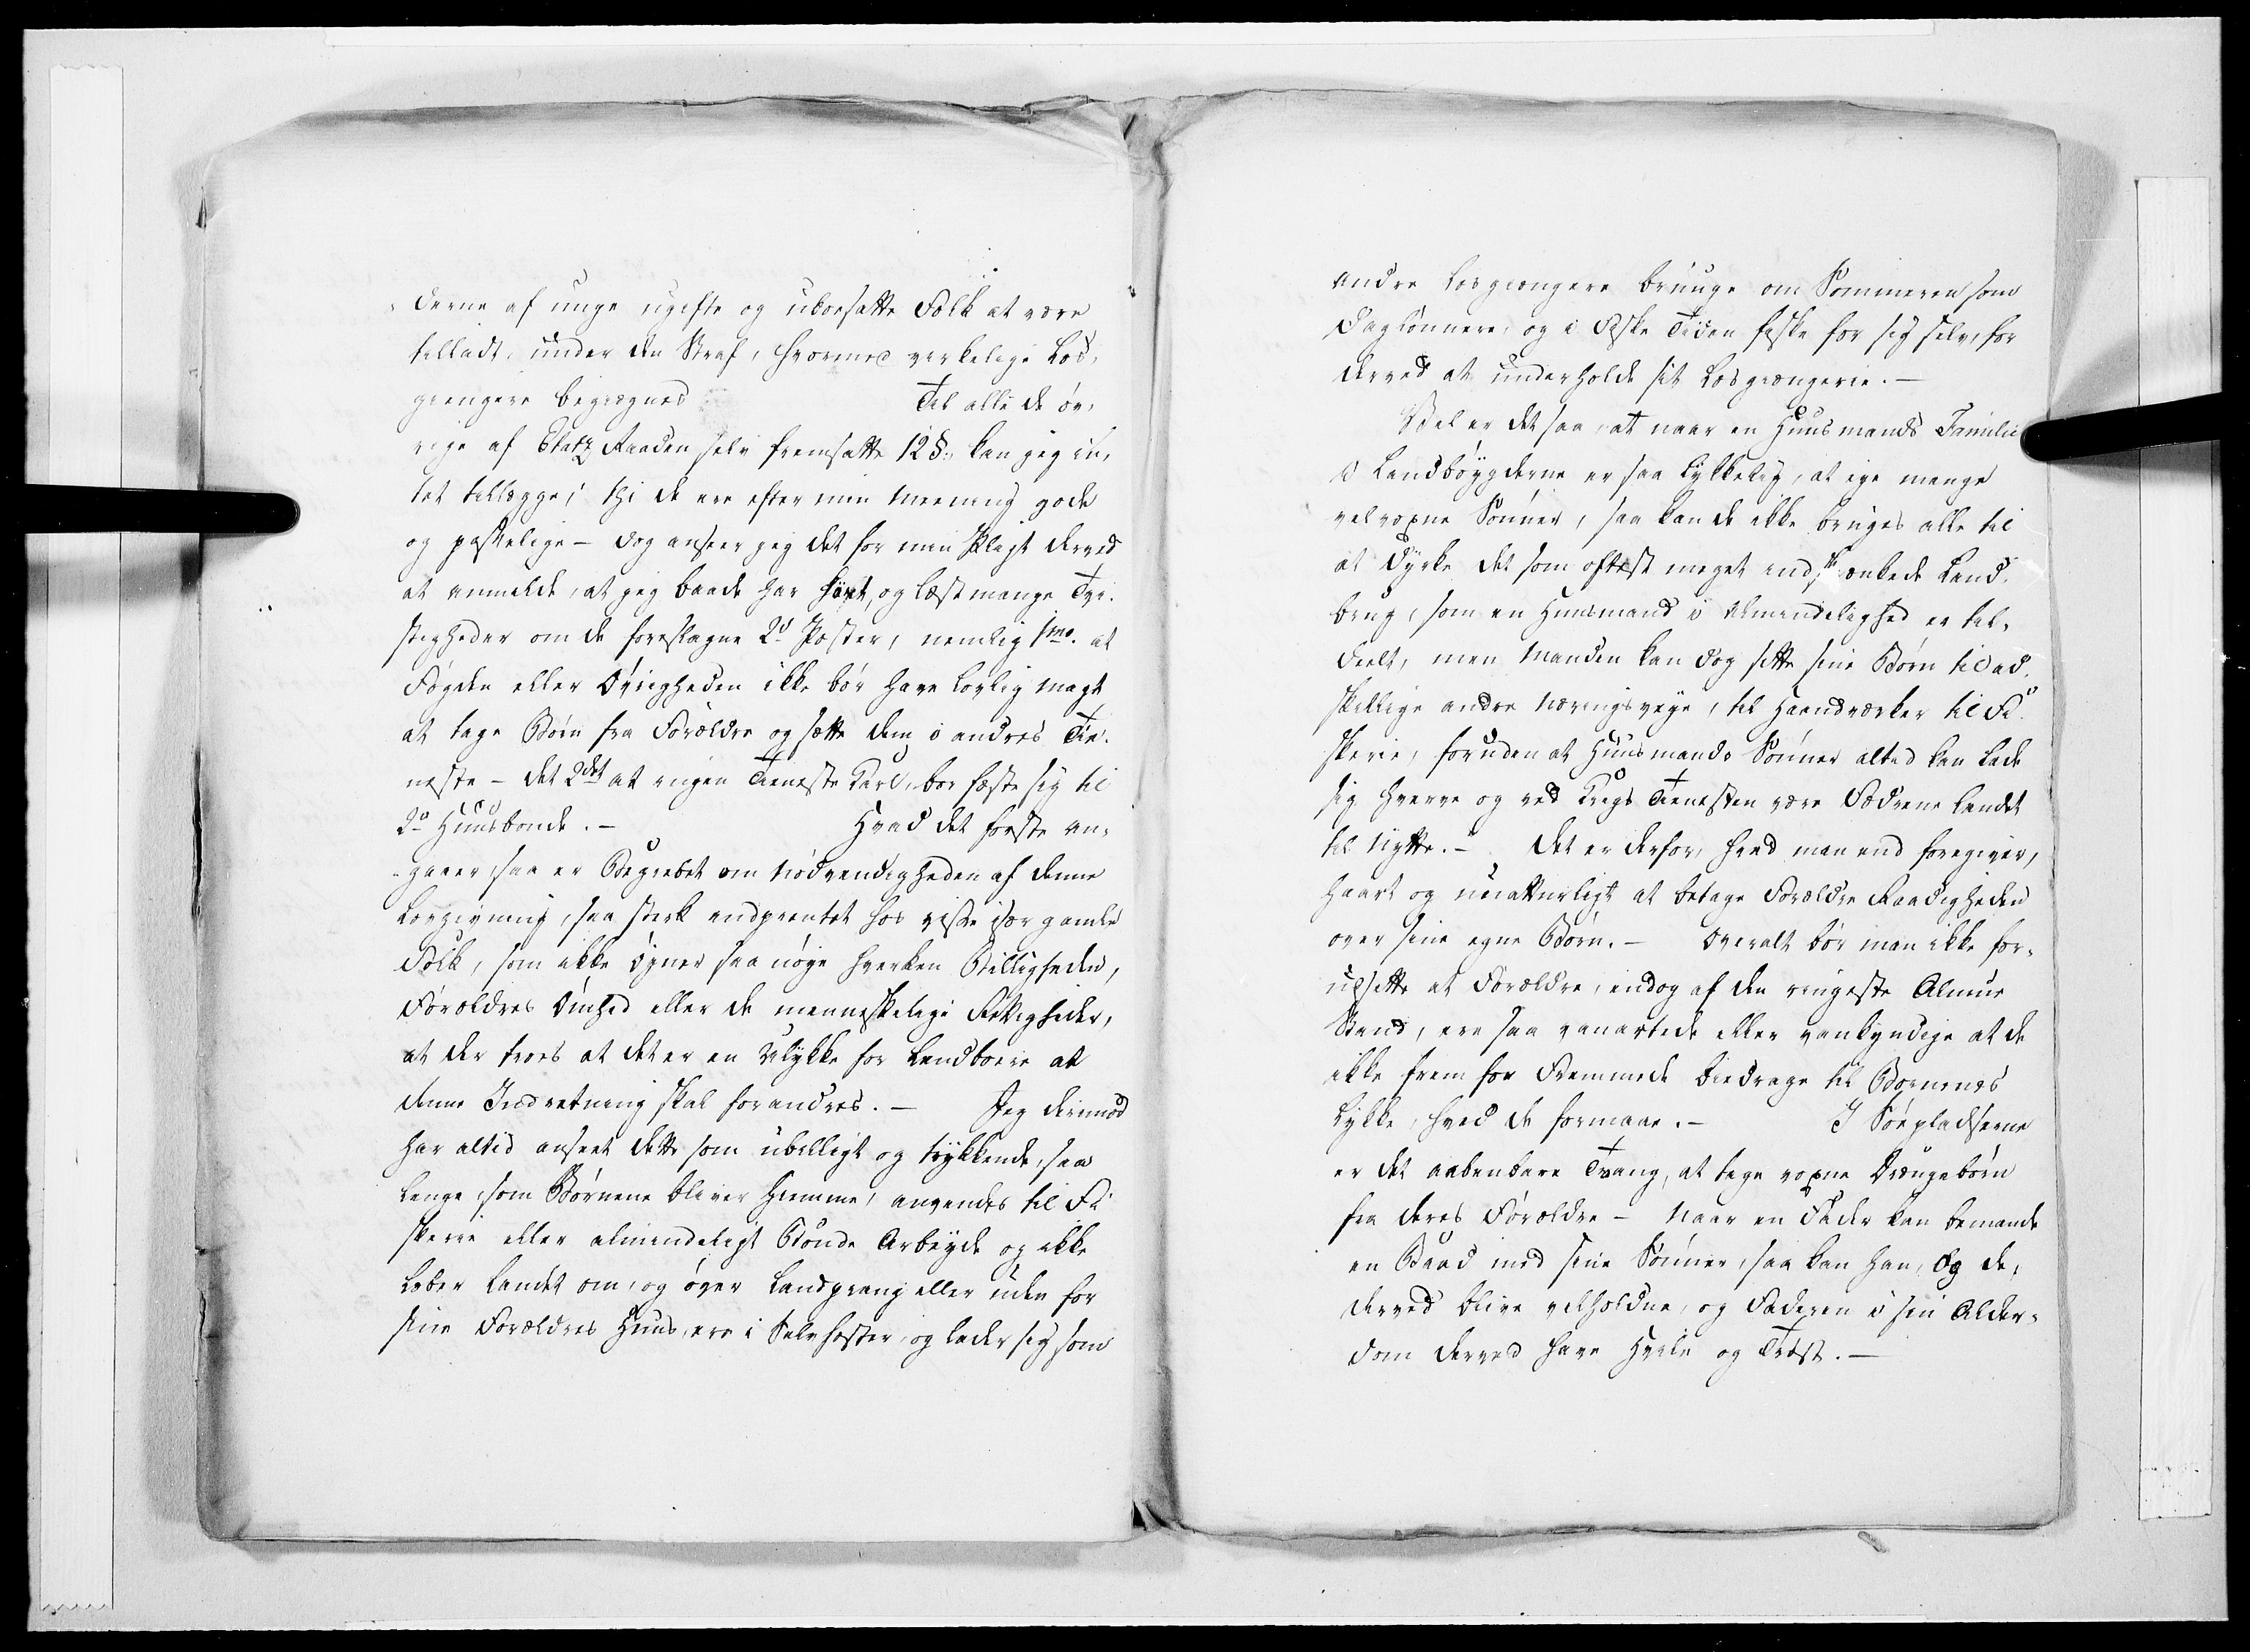 derne af unge ugifte og uboesatte Folk at være
tilladt, under den Straf, hvormed virkelige Løs,
giengere begiegnes Til alle de øv,
rige af Etatz Raaden selv fremsatte 12 §., kan jeg in,
tet tillegge; thi de ere efter min Meening gode
og passelige - dog anseer jeg det for min Pligt derved
at anmelde, at jeg baade har hørt, og læst mange Tvi-
stigheder om de foreslagne 2de Poster, nemlig 1mo. at
Fogden eller Øvrigheden ikke bør have lovlig Magt
at tage Børn fra Forældre og sætte dem i andres Tie-
neste - det 2det at ingen Tieneste Karl, bør fæste sig til
2de Huusbonde. - Hvad det første an-
gaaer, saa er Begrebet om Nødvendigheden af denne
Lovgivning, saa sterk indprentet hos visse især gamle
Folk, som ikke øyner saa nøye hverken Billigheden,
Forældres Ømhed eller de menneskelige Rettigheder,
at der troes at det er en Ulykke for Landboere at
denne Indretning skal forandres. - Jeg derimod
har altid anseet dette som ubilligt og trykkende, saa
lenge som Børnene bliver hiemme, anvendes til Fi-
skerie eller almindeligt Bonde Arbeyde og ikke
løber Landet om, og øver Landprang eller uden for
sine Forældres Huus, ere i Selvhester, og lader sig som
andre Løsgiengere bruuge om Sommeren som
Daglønnere, og i Fiske Tiden fiske for sig selv, for
derved at underholde sit Løsgiængerie. -
Vel er det saa, at naar en Huusmands Familie
i Landbøygderne er saa lykkelig, at eye mange
velvoxne Sønner, saa kan de ikke bruges alle til
at dyrke det som oftest meget indskrænkede Land,
brug, som en Huusmand i Almindelighed er til,
deelt, men Manden kan dog sette sine Børn til ad,
skillige andre Næringsveye, til Haandværker til Fi-
skerie, foruden at Huusmands Sønner altid kan lade
sig hverve og ved Krigs Tienesten være Fædrene Landet
til Nytte. - Det er derfor, hvad man end foregiver,
haart og unatturligt at betage Forældre Raadigheden
over sine egne Børn. - Overalt bør man ikke for-
udsette at Forældre, endog af den ringeste Almue
Stand, ere saa vanartede eller vankyndige at de
ikke frem for Fremmede bidrage til Børnenes
Lykke, hvad de formaae. - I Søepladserne
er det aabenbare Tvang, at tage voxne Drengebørn
fra deres Forældre - Naar en Fader kan bemande
en Baad med sine Sønner, saa kan han, og de,
derved blive velholdne, og Faderen i sin Alder-
dom derved have Hvile og Trøst. -